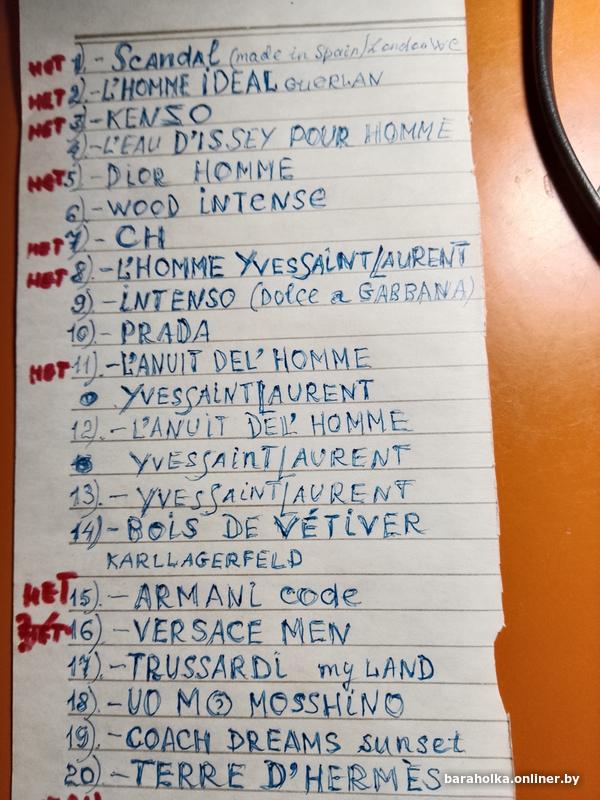 НЕТ 1) - Scandal (made in Spain)
НЕТ 2) - L'HOMME iDEAL GUERLAN
НЕТ 3) - KENZO
4) - L'EAU D'ISSEY POUR HOMME
НЕТ 5) - DIOR HOMME
6) - WOOD iNTENSe
НЕТ 7) - CH
НЕТ 8) - L'HOMME YVESSAiNTLAURENT
9) - iNTENSO (Dolce a GABBANA)
10) - PRADA
НЕТ 11). - L'ANUIT DEL' HOMME
YVESSAINTLAURENT
12). - L'ANUiT DEL' HOMME
YVESSAiNTLAURENT
13). - YVESSAiNTLAURENT
14) - BOIS DE VÉTiVER
KARLLAGERFELD
НЕТ 15). - ARMANi code
16) - VERSACE MEN
17) - TRUSSARDi my LAND
18). - UO MO MOSSHiNO
19). - COACH DREAMS sunset
20) - TERRE D'HERMÈS
baraholka.onliner.by